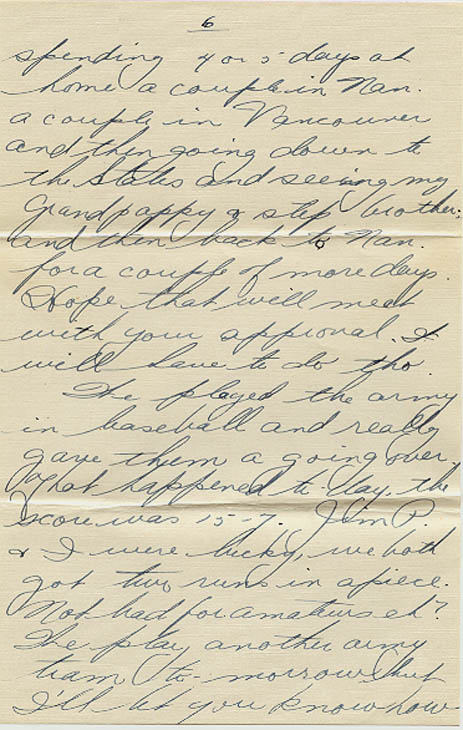 6
spending 4 or 5 days at
home a couple in Nan.
a couple in Vancouver
and then going down to
the States and seeing my
Grandpappy & step brother;
and then back to Nan.
for a couple of more days.
Hope that will meet
with your approval. It
will have to do tho.
We played the army
in baseball and really
gave them a going over,
that happened to day, the
score was 15-7. Jim P.
& I were lucky, we both
got two runs in apiece.
Not bad for amateurs eh?
We play another army
team to-morrow but
I'll let you know how